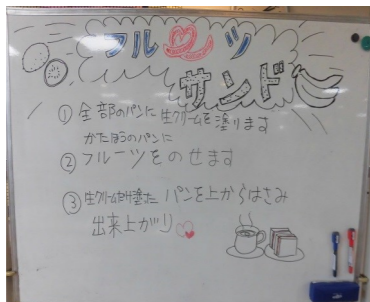 フルーツ
サンド
① 全部のパンに 生クリームを 塗ります
かたほうのパンに
② フルーツをのせます
③ 生クリームだけ塗った パンを上からはさみ
出来上がり